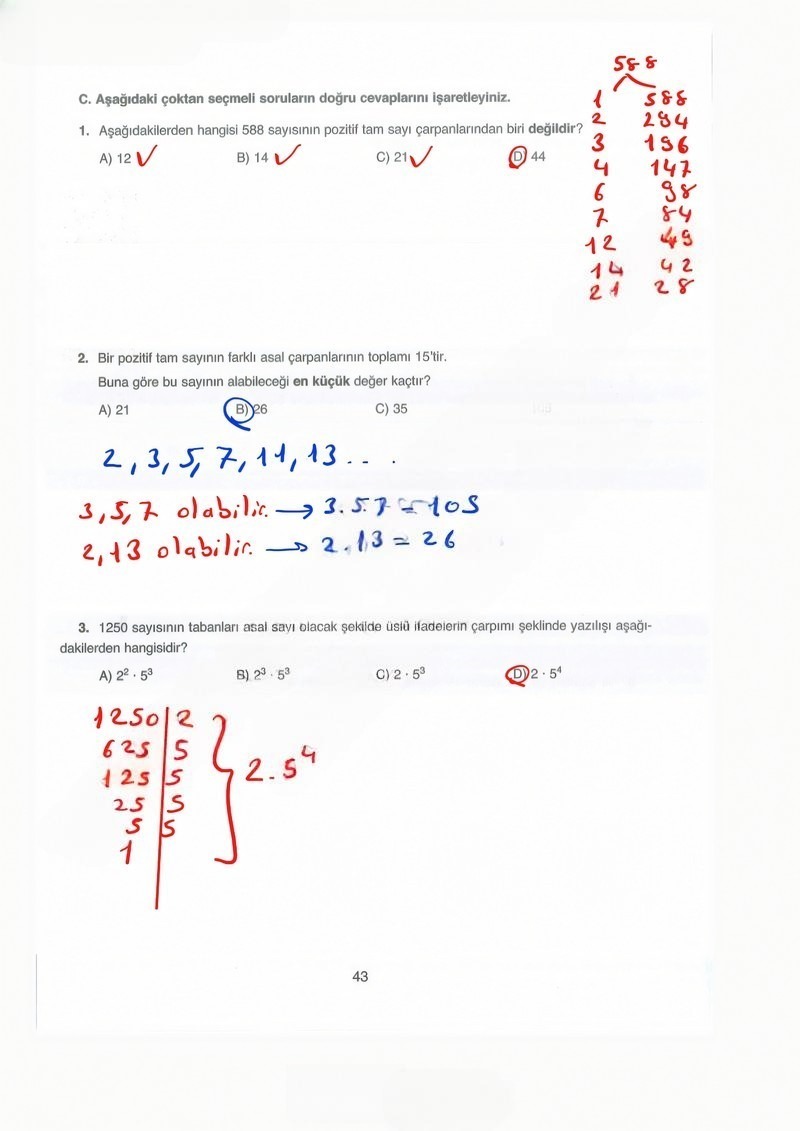 588
C. Aşağıdaki çoktan seçmeli soruların doğru cevaplarını işaretleyiniz.
1. Aşağıdakilerden hangisi 588 sayısının pozitif tam sayı çarpanlarından biri değildir?
A) 12 ✓ B) 14 ✓ C) 21 ✓ D) 44
1 588
2 294
3 196
4 147
6 98
7 84
12 49
14 42
21 28
2. Bir pozitif tam sayının farklı asal çarpanlarının toplamı 15'tir.
Buna göre bu sayının alabileceği en küçük değer kaçtır?
A) 21 B) 26 C) 35
2, 3, 5, 7, 11, 13 . . .
3, 5, 7 olabilir. → 3.5.7 = 105
2, 13 olabilir. → 2.13 = 26
3. 1250 sayısının tabanları asal sayı olacak şekilde üslü ifadelerin çarpımı şeklinde yazılışı aşağı-
dakilerden hangisidir?
A) 2² · 5³ B) 2³ · 5³ C) 2 · 5³ D) 2 · 5⁴
1250 | 2
625 | 5
125 | 5
25 | 5
5 | 5
1
2.5⁴
43